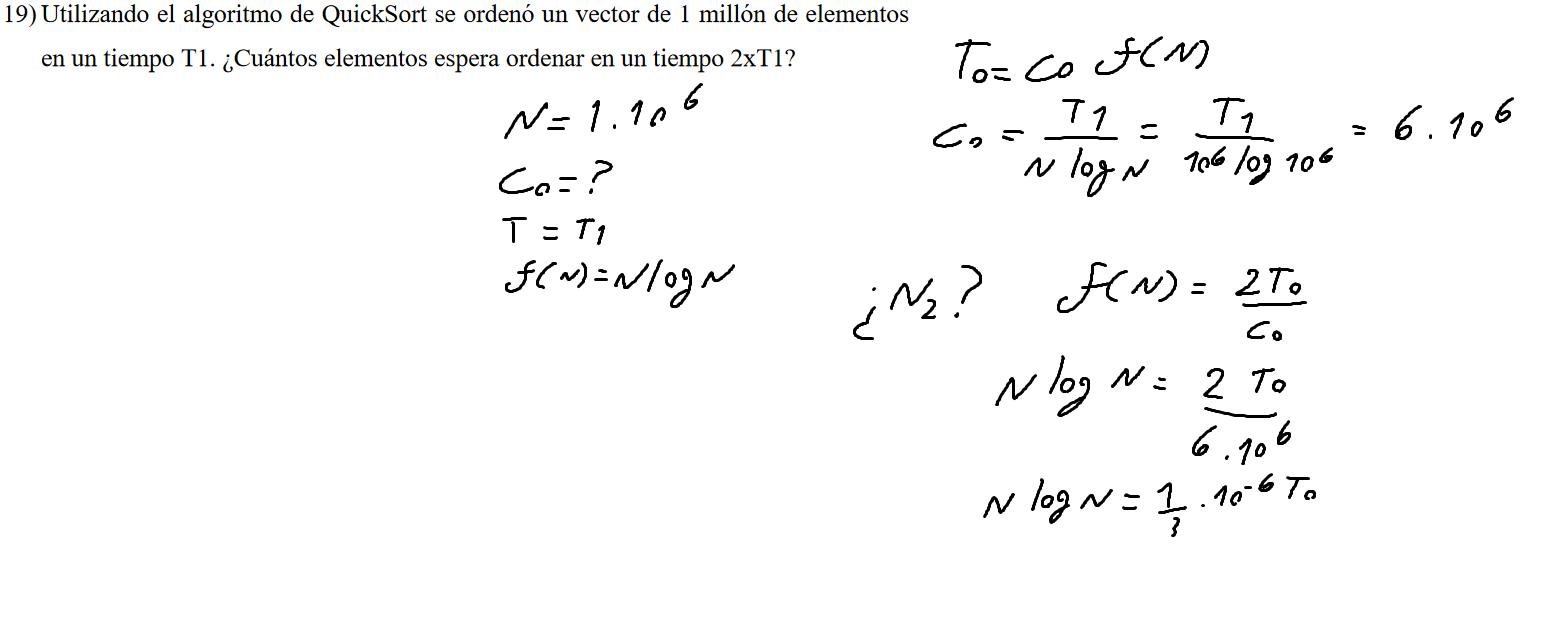 19) Utilizando el algoritmo de QuickSort se ordenó un vector de 1 millón de elementos
en un tiempo T1. ¿Cuántos elementos espera ordenar en un tiempo 2xT1?
N = 1.10^6
C₀ = ?
T = T₁
f(N) = N log N
T₀ = C₀ f(N)
C₀ = T1 / (N log N) = T₁ / (10^6 log 10^6) = 6.10^6
¿N₂? f(N) = 2T₀ / C₀
N log N = 2 T₀ / (6.10^6)
N log N = 1/3 . 10^-6 T₀